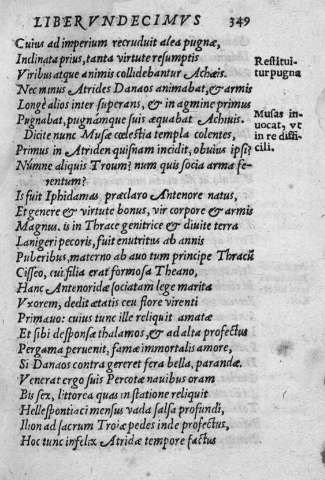 LIBER VNDECIMVS 349
Cuius ad imperium recruduit alea pugnæ,
Inclinata prius, tanta virtute resumptis
Viribus atque animis collidebantur Achæis.
Restitui-
tur pugna
Nec minus Atrides Danaos animabat, & armis
Longè alios inter superans, & in agmine primus
Pugnabat, pugnámque suis æquabat Achiuis.
Musas in-
uocat, vt
in re diffi-
cili.
Dicite nunc Musæ cœlestia templa colentes,
Primus in Atriden quisnam incidit, obuius ipsi?
Númne aliquis Troum? num quis socia arma fe-
rentum?
Is fuit Iphidamas præclaro Antenore natus,
Et genere & virtute bonus, vir corpore & armis
Magnus. is in Thrace genitrice & diuite terra
Lanigeri pecoris, fuit enutritus ab annis
Puberibus, materno ab auo tum principe Thracũ
Cisseo, cui filia erat formosa Theano,
Hanc Antenoridæ sociatam lege marita
Vxorem, dedit ætatis ceu flore virenti
Primæuo: cuius tunc ille reliquit amatæ
Et sibi desponsæ thalamos, & ad alta profectus
Pergama peruenit, famæ immortalis amore,
Si Danaos contra gereret fera bella, parandæ.
Venerat ergo suis Percotæ nauibus oram
Bis sex, littorea quas in statione reliquit
Hellespontiaci mensus vada salsa profundi,
Ilion ad sacrum Troiæ pedes inde profectus,
Hoc tunc infelix Atridæ tempore factus